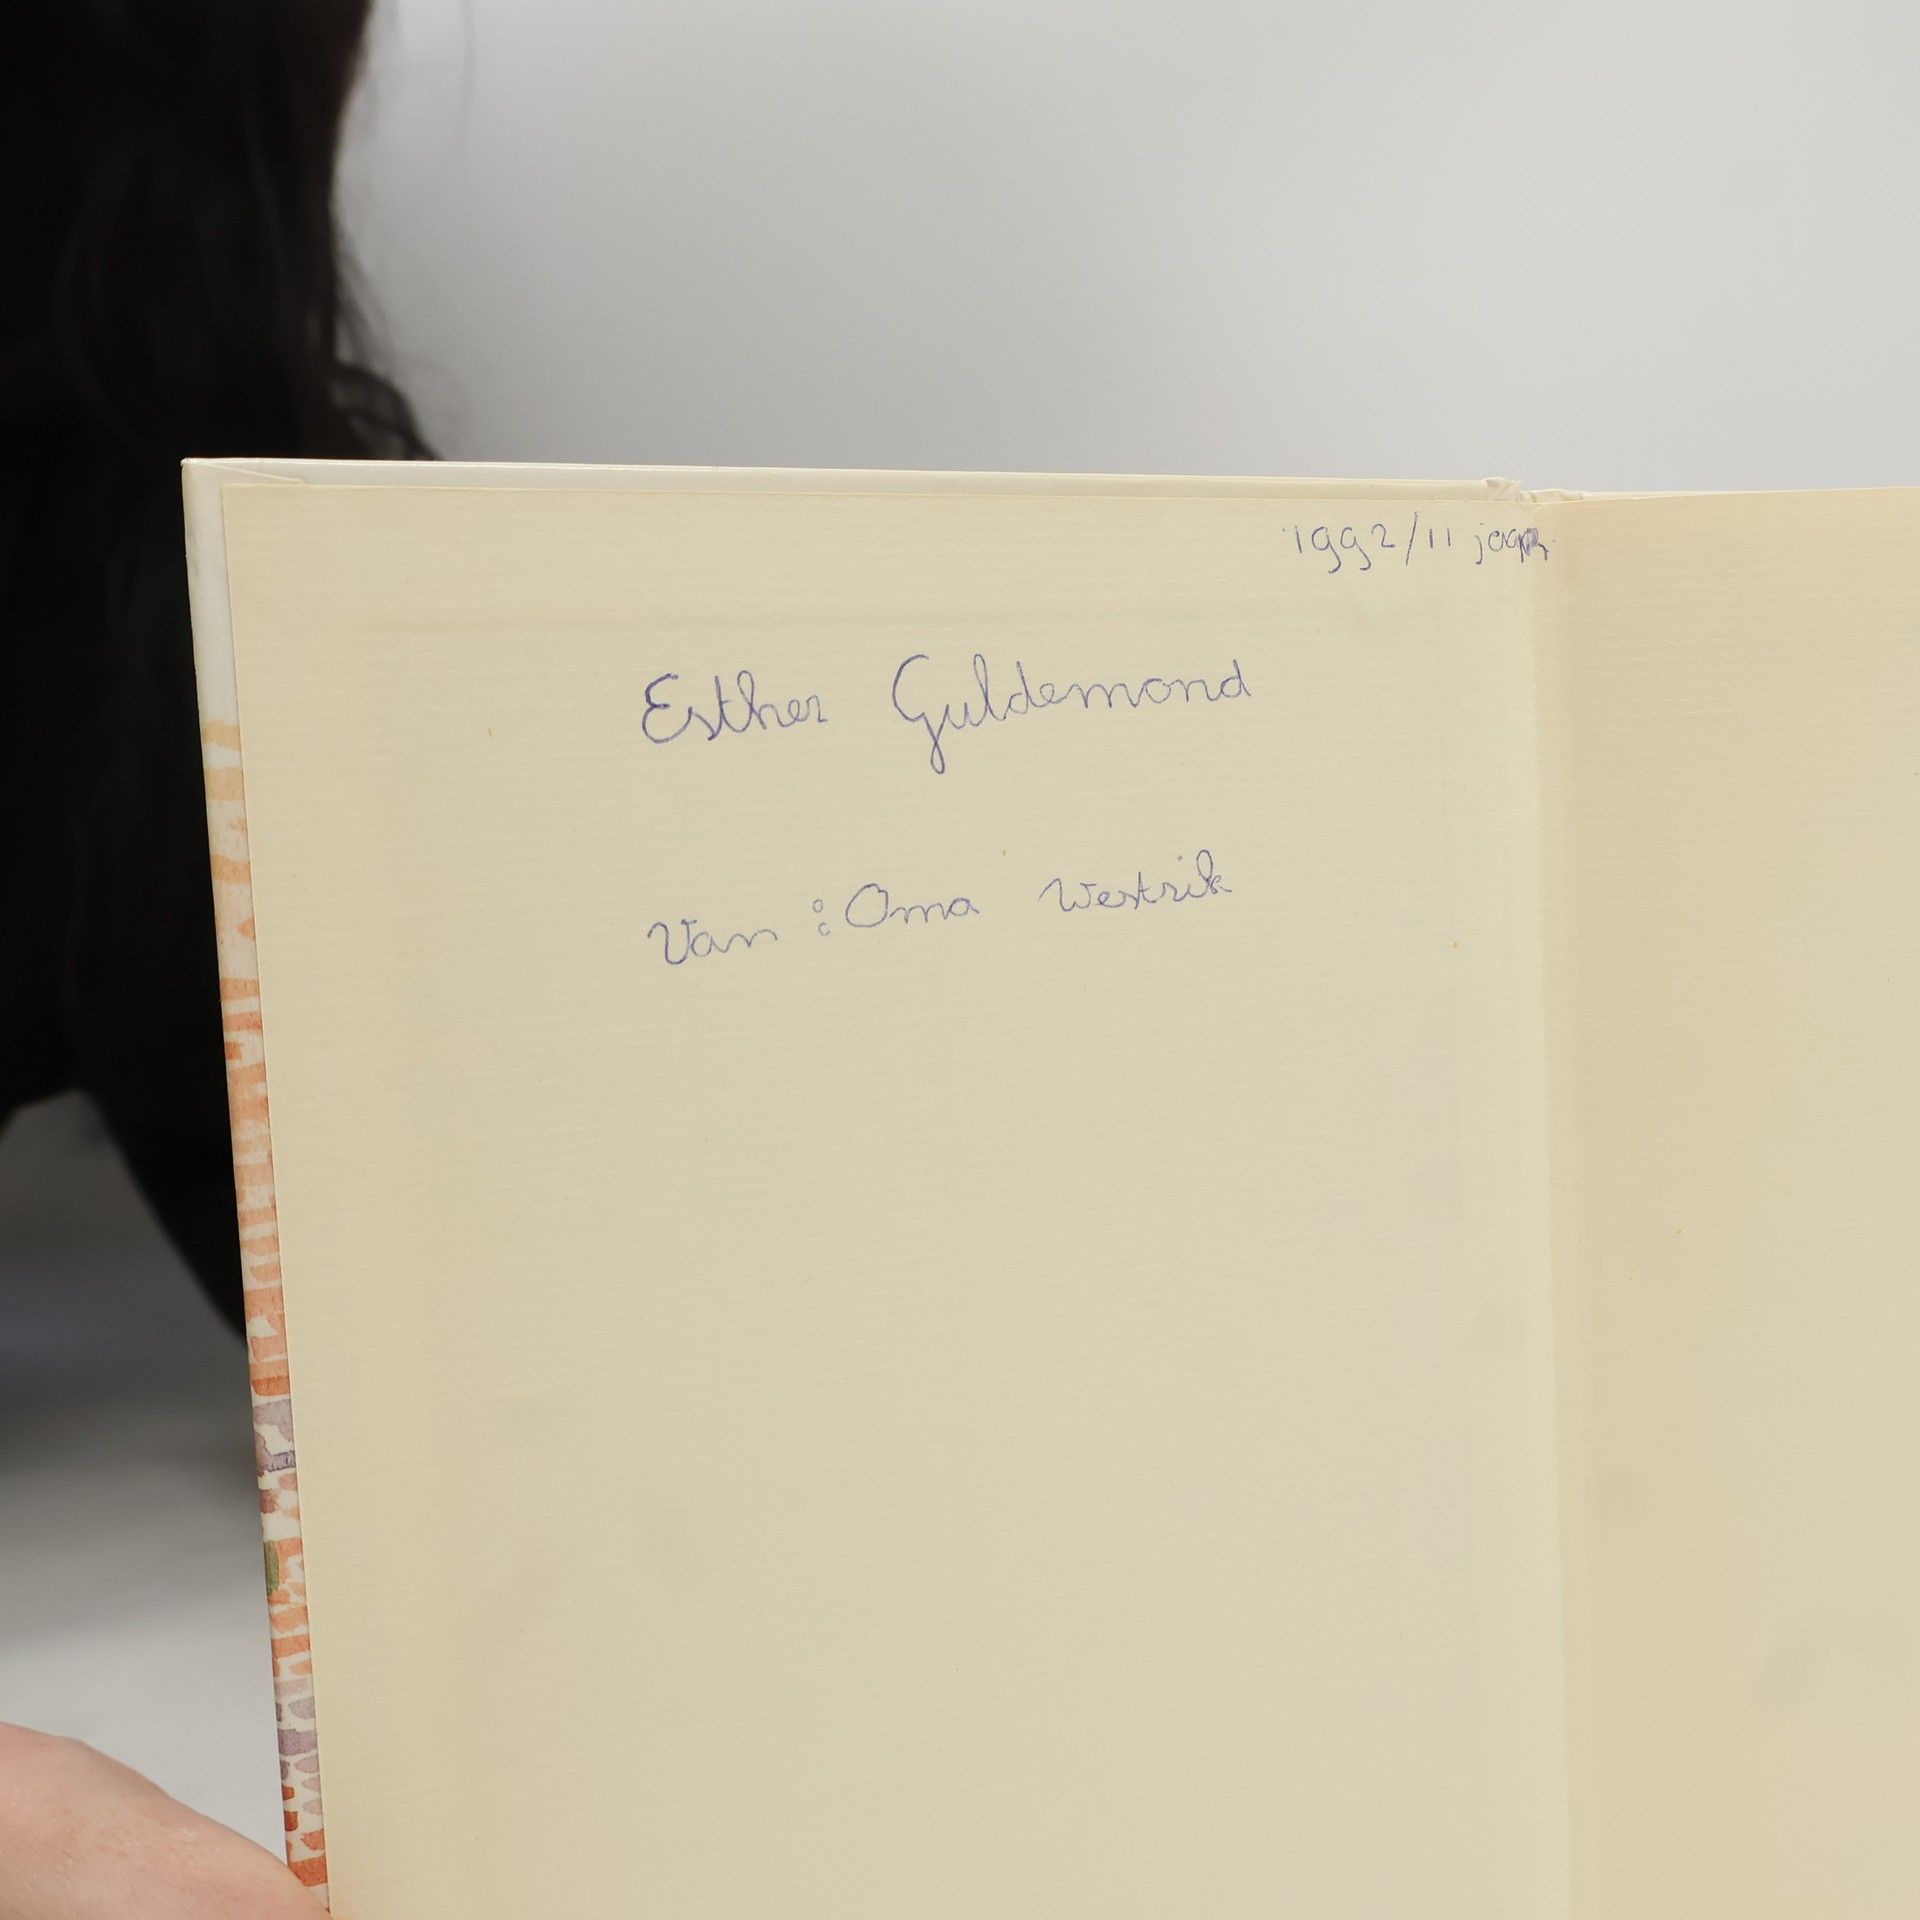 1992/11 jaar
Esther Guldemond
Van : Oma Westrik